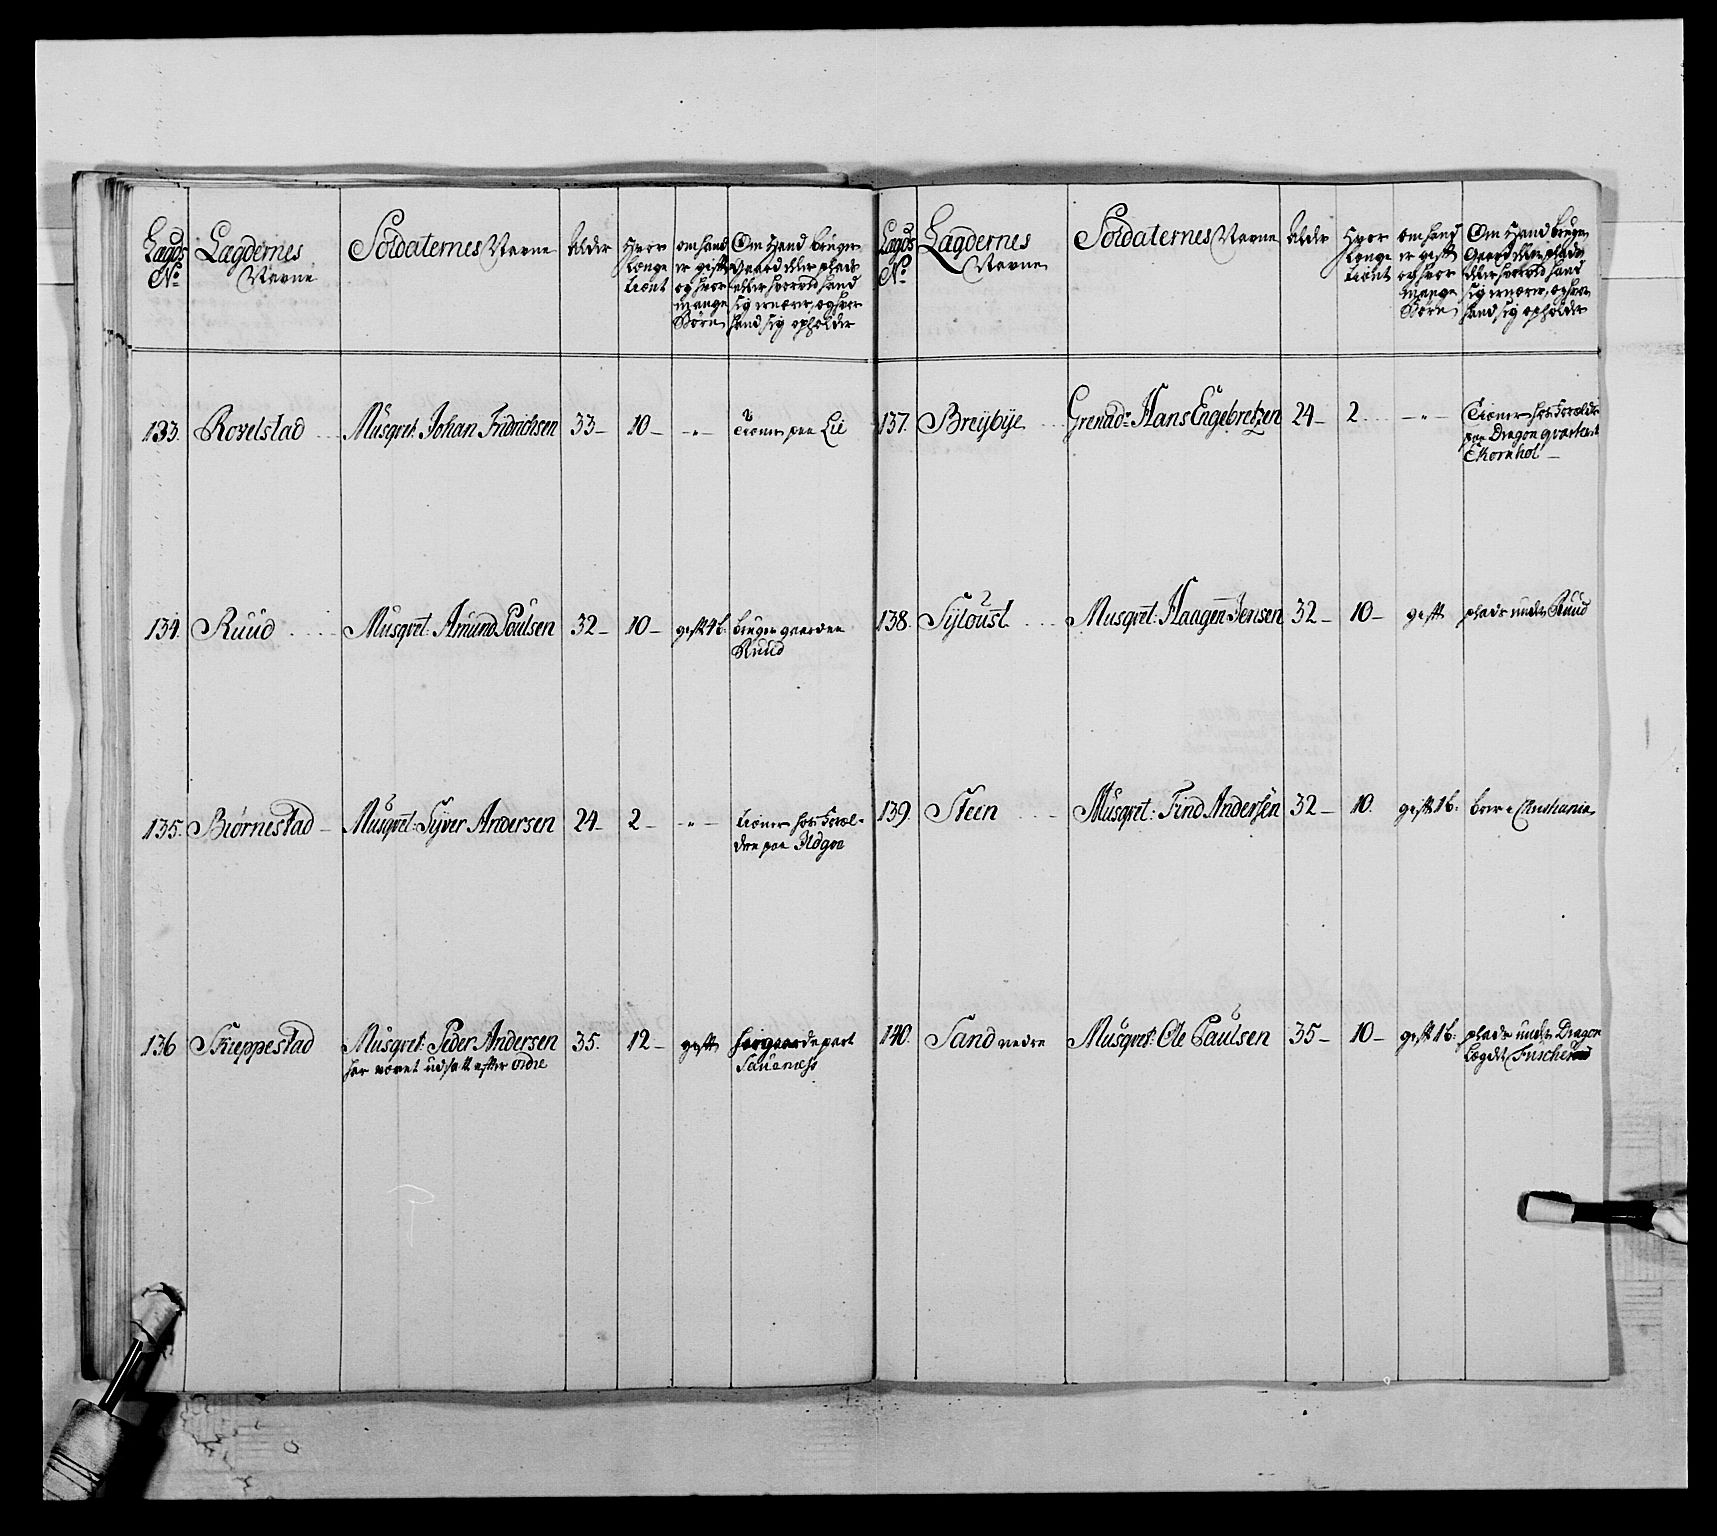 Lagds No Lagdernes Navne Soldaternes Navne Alder Hvor Længe tient om hand er gift og hvor mange Børn Om Hand bruger Gaard eller plads eller hvorved hand sig ernærer, og hvor hand sig opholder
133. Rovelstad Musqvet: Johan Fridrichsen 33 10 - " - tiener paa Lie
134. Ruud Musqvet: Amund Poulsen 32 10 gift 4 b: bruger gaarden
Ruud
135. Biørnestad Musqvet: Syver Andersen 24 2 - " - tiener hos Foræl-
dre paa
136 Skieppestad Musqvet: Peder Andersen 35. 12 gift
har været udsatt efter ordre
Lagds No Lagdernes Navne Soldaternes Navne Alder Hvor Længe tient om hand er gift og hvor mange Børn Om Hand bruger Gaard eller plads eller hvorved hand sig ernærer, og hvor hand sig opholder
137. Breijbÿe Grenad: Hans Engebretzen 24 2 - " - tiener hos Foreldre
paa Dragon qvarteret
138. Musqvet: Haagen Jensen 32 10 gift plads under Ruud
139. Steen Musqvet: Find Andersen 32 10. gift 1 b: boer i Christiania
140. Sand nedre Musqvet: Ole Paulsen 35 10 gift 1 b: plads under Dragon
Lægdet